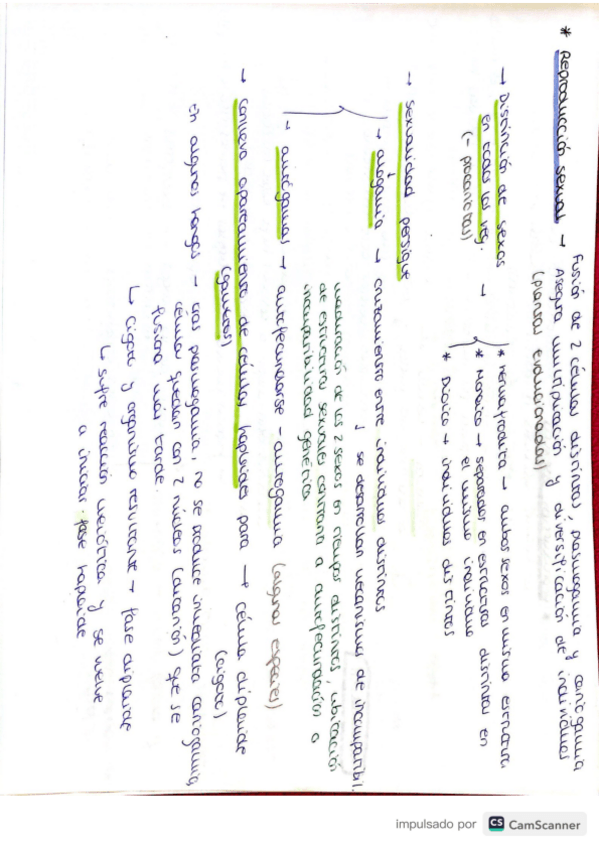 * Reproducción sexual → Fusión de 2 células distintas, plasmogamia y cariogamia
Asegura multiplicación y diversificación de individuos
(plantas evolucionadas)
→ Distinción de sexos en todos los veg. (- procariotas) →
* Hermafrodita → ambos sexos en misma estructura
* Monoico → separados en estructuras distintas en
el mismo individuo
* Dioico → individuos distintos
→ sexualidad persigue
↓
→ alogamia → cruzamiento entre individuos distintos
↓ se desarrollan mecanismos de incompatibil.
maduración de los 2 sexos en tiempos distintos, ubicación
de estructuras sexuales contraria a autofecundación o
incompatibilidad genética
→ autógamas → autofecundarse - autogamia (algunas especies)
→ Conlleva apareamiento de células haploides para → célula diploide
(gametos) (cigoto)
en algunos hongos → tras plasmogamia, no se produce inmediata cariogamia,
células quedan con 2 núcleos (dicarión) que se
fusiona más tarde.
↳ Cigoto y organismo resultante → fase diploide
↳ sufre reacción meiótica y se vuelve
a iniciar fase haploide
impulsado por CS CamScanner